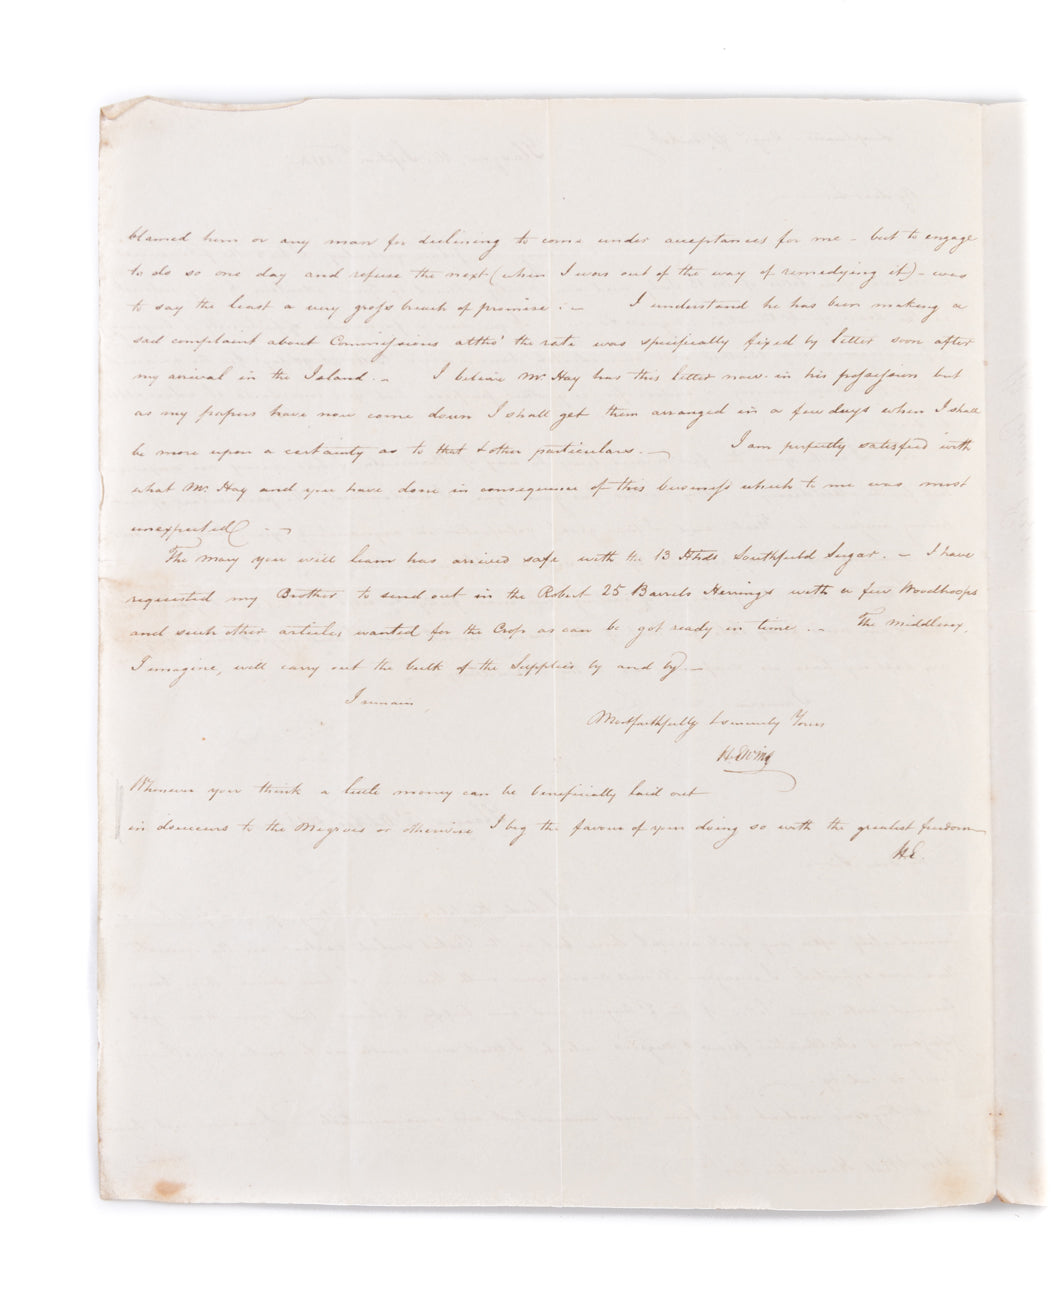 blamed him or any man for declining to come under acceptances for me - but to engage
to do so one day and refuse the next (when I was out of the way of remedying it) - was
to say the least a very gross breach of promise. - I understand he has been making a
sad complaint about Commissions altho' the rate was specifically fixed by letter soon after
my arrival in the Island. - I believe Mr. Hay has this letter now in his possession but
as my papers have now come down I shall get them arranged in a few days when I shall
be more upon a certainty as to that & other particulars. - I am perfectly satisfied with
what Mr. Hay and you have done in consequence of this business which to me was most
unexpected. -
The Mary you will learn has arrived safe with the 13 Hhds Southfield Sugar. - I have
requested my Brother to send out in the Robert 25 Barrels Herrings with a few Woodhoops
and such other articles wanted for the Crop as can be got ready in time. - The Middlesex,
I imagine, will carry out the bulk of the Supplies by and by. -
I remain
Most faithfully & sincerely Yours
H. Ewing
Whenever you think a little money can be beneficially laid out
in douceurs to the Negroes or otherwise I beg the favour of your doing so with the greatest freedom
H.E.